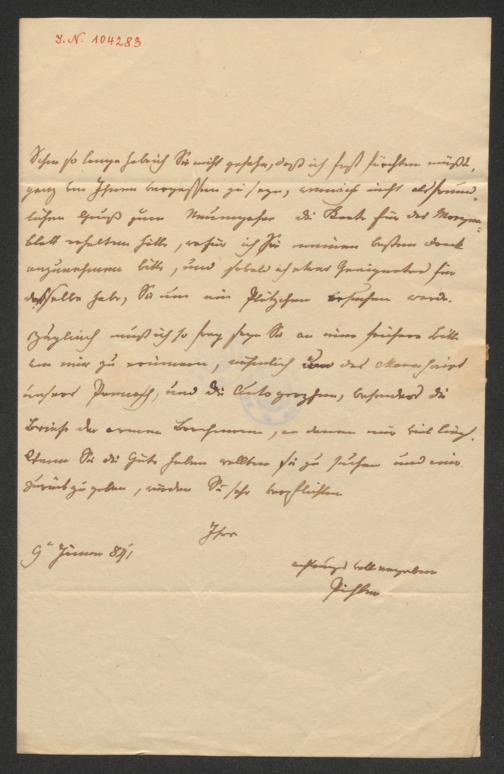 I. N. 104283
Schon so lange habe ich Sie nicht gesehen, daß ich fast fürchten müßte,
ganz von Ihnen vergessen zu seyn, wenn ich nicht als freund-
lichen Gruß zum Neuenjahr die Karte für das Morgen-
blatt erhalten hätte, wofür ich Sie meinen besten Dank
anzunehmen bitte, und sobald ich etwas Geeignetes für
dasselbe habe, Sie um ein Plätzchen ersuchen werde.
Zugleich muß ich so frey seyn Sie an eine frühere Bitte
von mir zu erinnern, nähmlich um das Manuscript
unsers und die Autographen, besonders die
Briefe der armen Brachmann, an denen mir viel liegt.
Wenn Sie die Güte haben wollten sie zu suchen und mir
zurückzugeben, würden Sie sehr verpflichten
Ihre
9n Jänner 841
achtungsvoll ergebene
Pichler